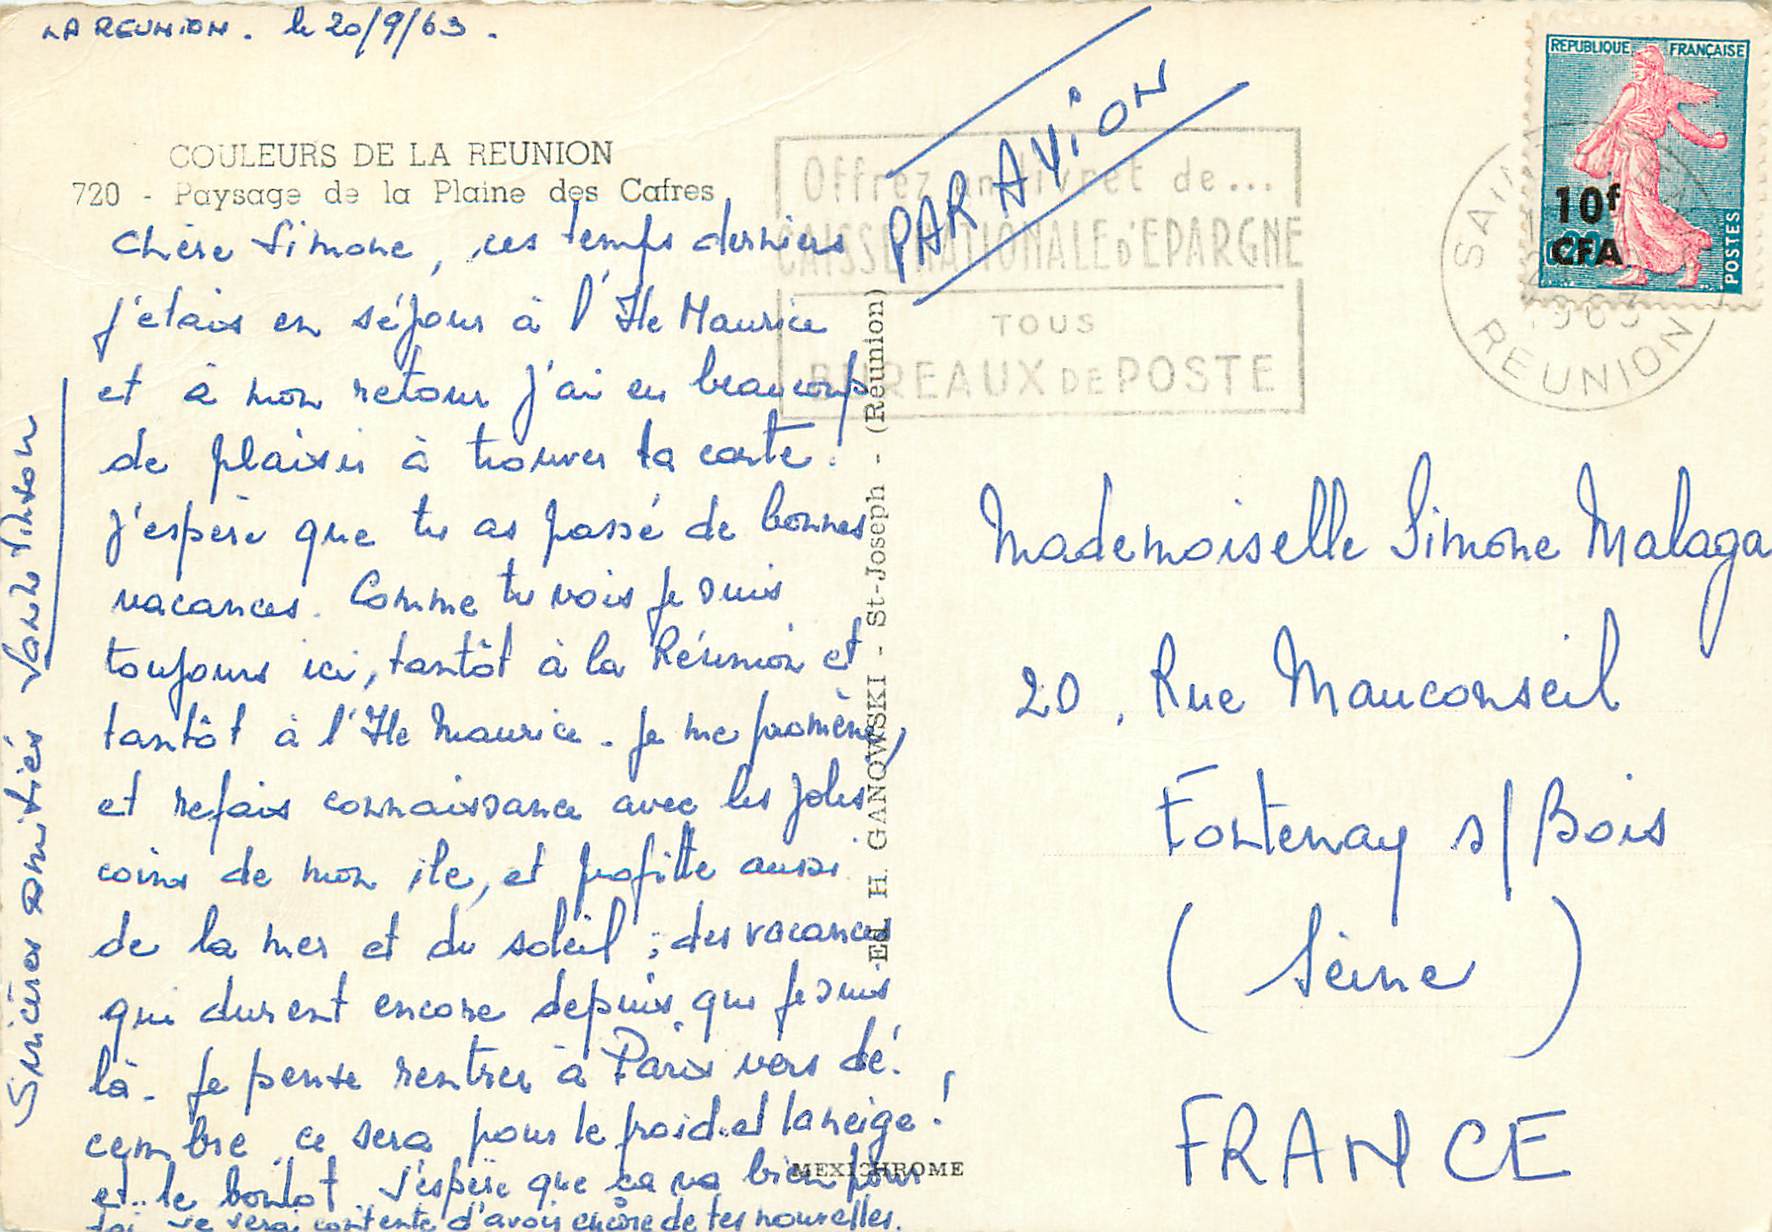 LA REUNION. le 20/9/63.
COULEURS DE LA REUNION
720 - Paysage de la Plaine des Cafres
Chère Simone, ces temps derniers
j'étais en séjour à l'Ile Maurice
et à mon retour j'ai eu beaucoup
de plaisir à trouver ta carte.
J'espère que tu as passé de bonnes
vacances. Comme tu vois je suis
toujours ici, tantôt à la Réunion et
tantôt à l'Ile Maurice. Je me promène,
et refais connaissance avec les jolies
coins de mon ile, et profitte aussi
de la mer et du soleil; des vacances
qui durent encore depuis que je suis
là. Je pense rentrer à Paris vers dé-
cembre, ce sera pour le froid et la neige!
et le boulot. J'espère que ça va bien pour
toi. Je serai contente d'avoir encore de tes nouvelles.
Sincères amitiés
PAR AVION
Offrez un livret de...
CAISSE NATIONALE D'EPARGNE
TOUS
BUREAUX DE POSTE
Ed. H. GANOWSKI - St-Joseph - (Réunion)
MEXICHROME
REPUBLIQUE FRANÇAISE
10f
CFA
POSTES
REUNION
1963
Mademoiselle Simone Malaga
20, Rue Mauconseil
Fontenay s/Bois
(Seine)
FRANCE